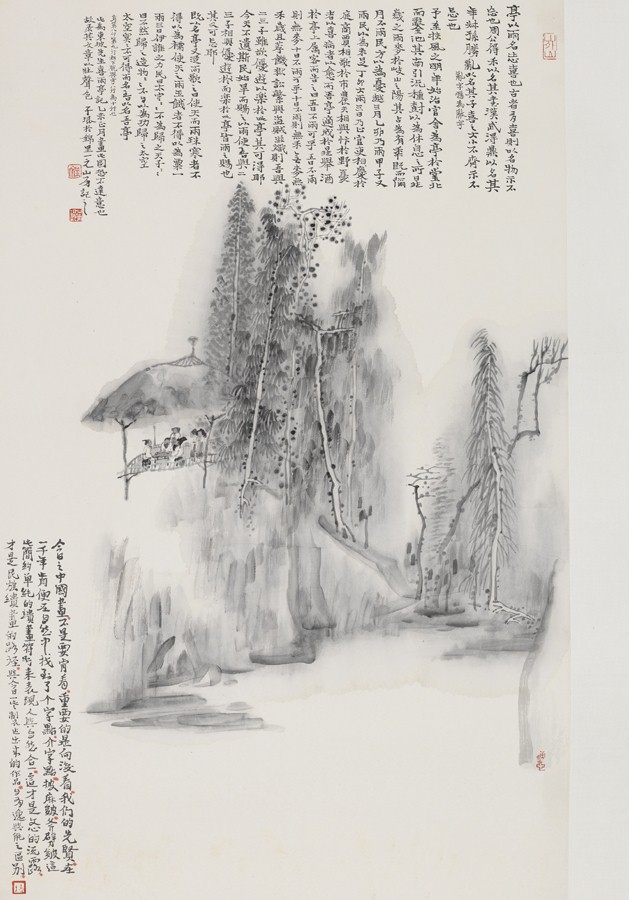 亭以雨名志喜也古者有喜則以名物示不
忘也周公得禾以名其書漢武得鼎以名其
年叔孫勝亂以名其子喜之大小不齊示不
忘一也
予至扶風之明年始治官舍為亭於堂北
而鑿池其南引流種樹以為休息之所是
歲之雨麥於岐山之陽其占為有年既而彌
月不雨民方以為憂越三月乙卯乃雨甲子又
雨民以為未足丁卯大雨三日乃止官吏相慶於
庭商賈相歌於市農夫相與忭於野憂
者以喜病者以愈而吾亭適成於是舉酒
於亭上屬客而告之曰五日不雨可乎曰五日不雨
則無麥十日不雨可乎曰十日不雨則無禾無麥無
禾歲且荐饑獄訟繁興盜賊滋熾則吾與
二三子雖欲優游以樂於此亭其可得耶
今天不遺斯民始旱而賜之以雨使吾與二
三子相與優游於而樂於此亭者雨之賜也
其又可忘耶
既以名亭又從而歌之曰使天而雨珠寒者不
得以為襦使天而雨玉饑者不得以為粟一
雨三日伊誰之力民曰太守ミ不為歸之天子ミ
曰不然歸之造物ミ不自以為功歸之太空
太空冥ミ不可得而名吾以名吾亭
此為東坡先生喜雨亭記乙未正月畫此圖恐不達意也
故墨于文章以壯聲色
今日之中國畫不是要向看重要的是向後看我們的先賢在
一千年前便在自然中找到了个字點介字點披麻皴斧劈皴這
些簡約單純的繪畫符號來表現人與自然合一這才是文心的流露
才是民族繪畫的路徑與今日之製作出來的作品